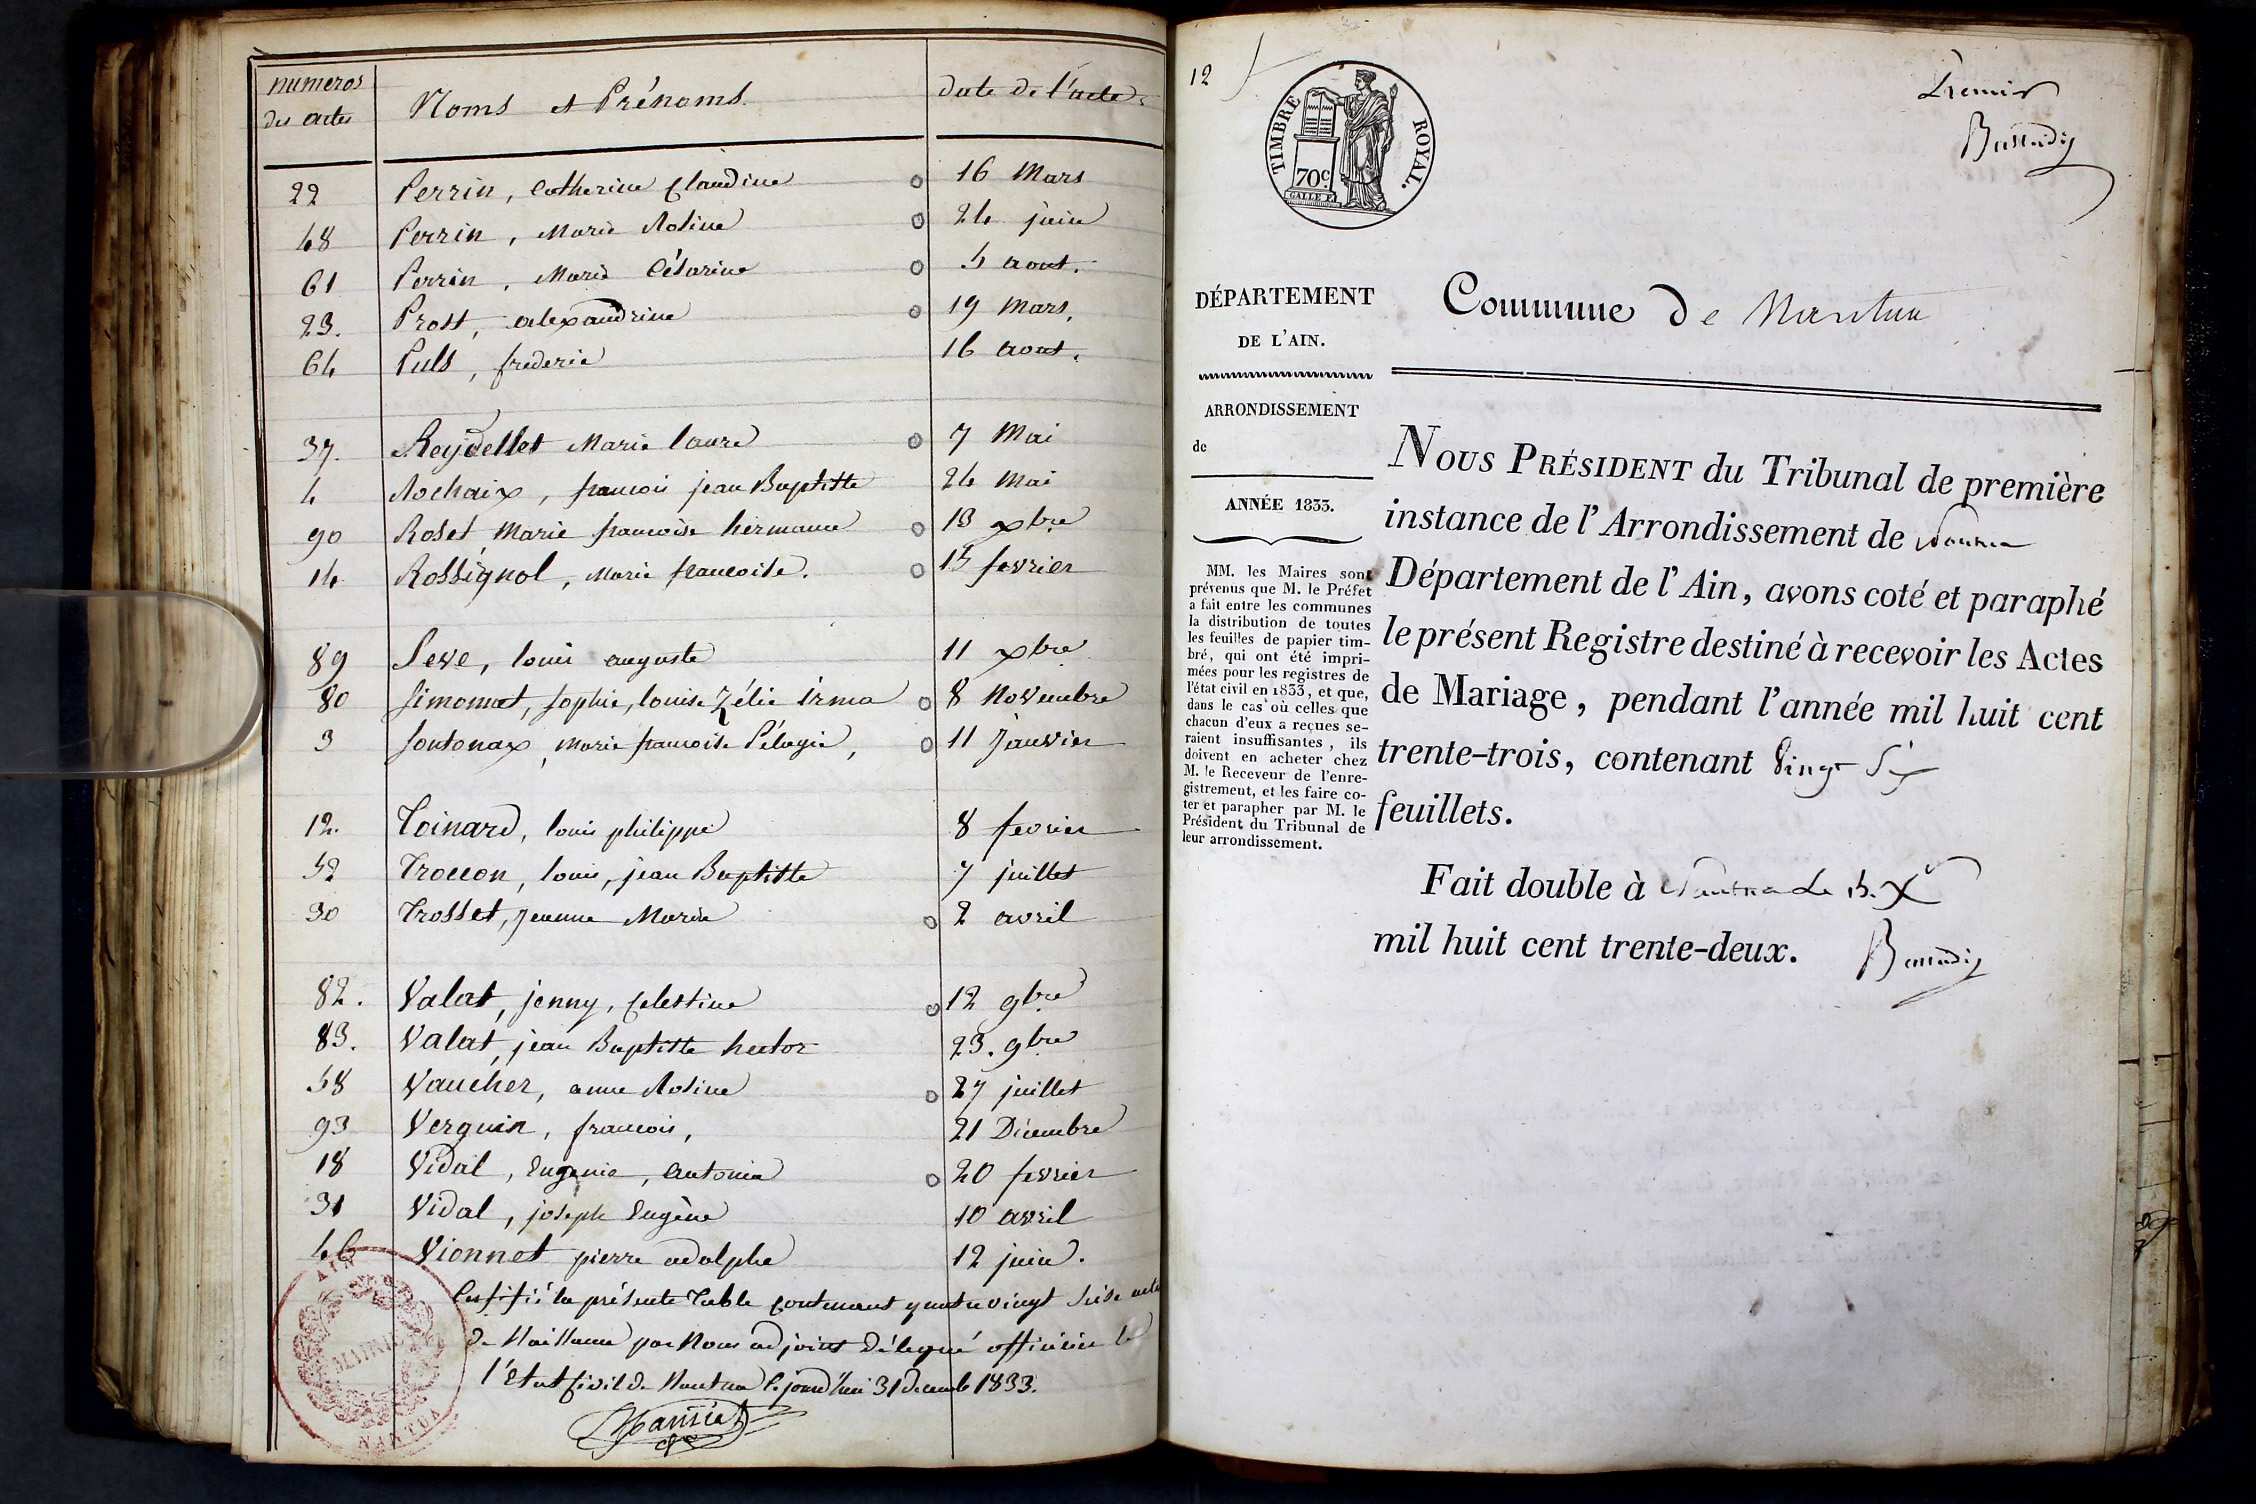 numeros des actes | Noms et Prénoms. | date de l'acte
22 Perrin, Catherine Claudine 16 Mars
48 Perrin, Marie Rosine 24 juin
61 Perrin, Marie Césarine 5 aout.
23. Prost, alexandrine 19 Mars.
64 Puls, frederic 16 aout.
37. Reydellet Marie laure 7 Mai
4 Rochaix, francois jean Baptiste 24 Mai
90 Roset, Marie francoise hermance 13 xbre
14 Rossignol, Marie francoise. 15 fevrier
89 Seve, louis auguste 11 xbre
80 Simonnet, sophie, louise Zélie irma 8 Novembre
3 Sontonax, marie francoise Pélagie, 11 Janvier
12. Toinard, louis philippe 8 fevrier
52 Troccon, louis, jean Baptiste 7 juillet
30 Trosset, Jeanne Marie 2 avril
82. Valat, jenny, Celestine 12 9bre
83. Valat, jean Baptiste hector 23. 9bre
58 Vaucher, anne Rosine 27 juillet
93 Verguin, francois, 21 Décembre
18 Vidal, Eugenie, antonia 20 fevrier
31 Vidal, joseph Eugène 10 avril
46 Vionnet pierre adolphe 12 juin.
Certifié la présente Table contenant quatre vingt seise actes
de Naissance par Nous adjoint délégué officier de
l'Etat Civil de Nantua le jourd'hui 31 decembre 1833.
AIN
MAIRIE
NANTUA
12
TIMBRE ROYAL.
70c.
GALLE F.
Premier
DÉPARTEMENT
DE L'AIN.
ARRONDISSEMENT
de
ANNÉE 1833.
MM. les Maires sont
prévenus que M. le Préfet
a fait entre les communes
la distribution de toutes
les feuilles de papier tim-
bré, qui ont été impri-
mées pour les registres de
l'état civil en 1833, et que,
dans le cas où celles que
chacun d'eux a reçues se-
raient insuffisantes, ils
doivent en acheter chez
M. le Receveur de l'enre-
gistrement, et les faire co-
ter et parapher par M. le
Président du Tribunal de
leur arrondissement.
Commune de Nantua
NOUS PRÉSIDENT du Tribunal de première
instance de l'Arrondissement de Nantua
Département de l'Ain, avons coté et paraphé
le présent Registre destiné à recevoir les Actes
de Mariage, pendant l'année mil huit cent
trente-trois, contenant Vingt Six
feuillets.
Fait double à Nantua le 15. Xe
mil huit cent trente-deux.